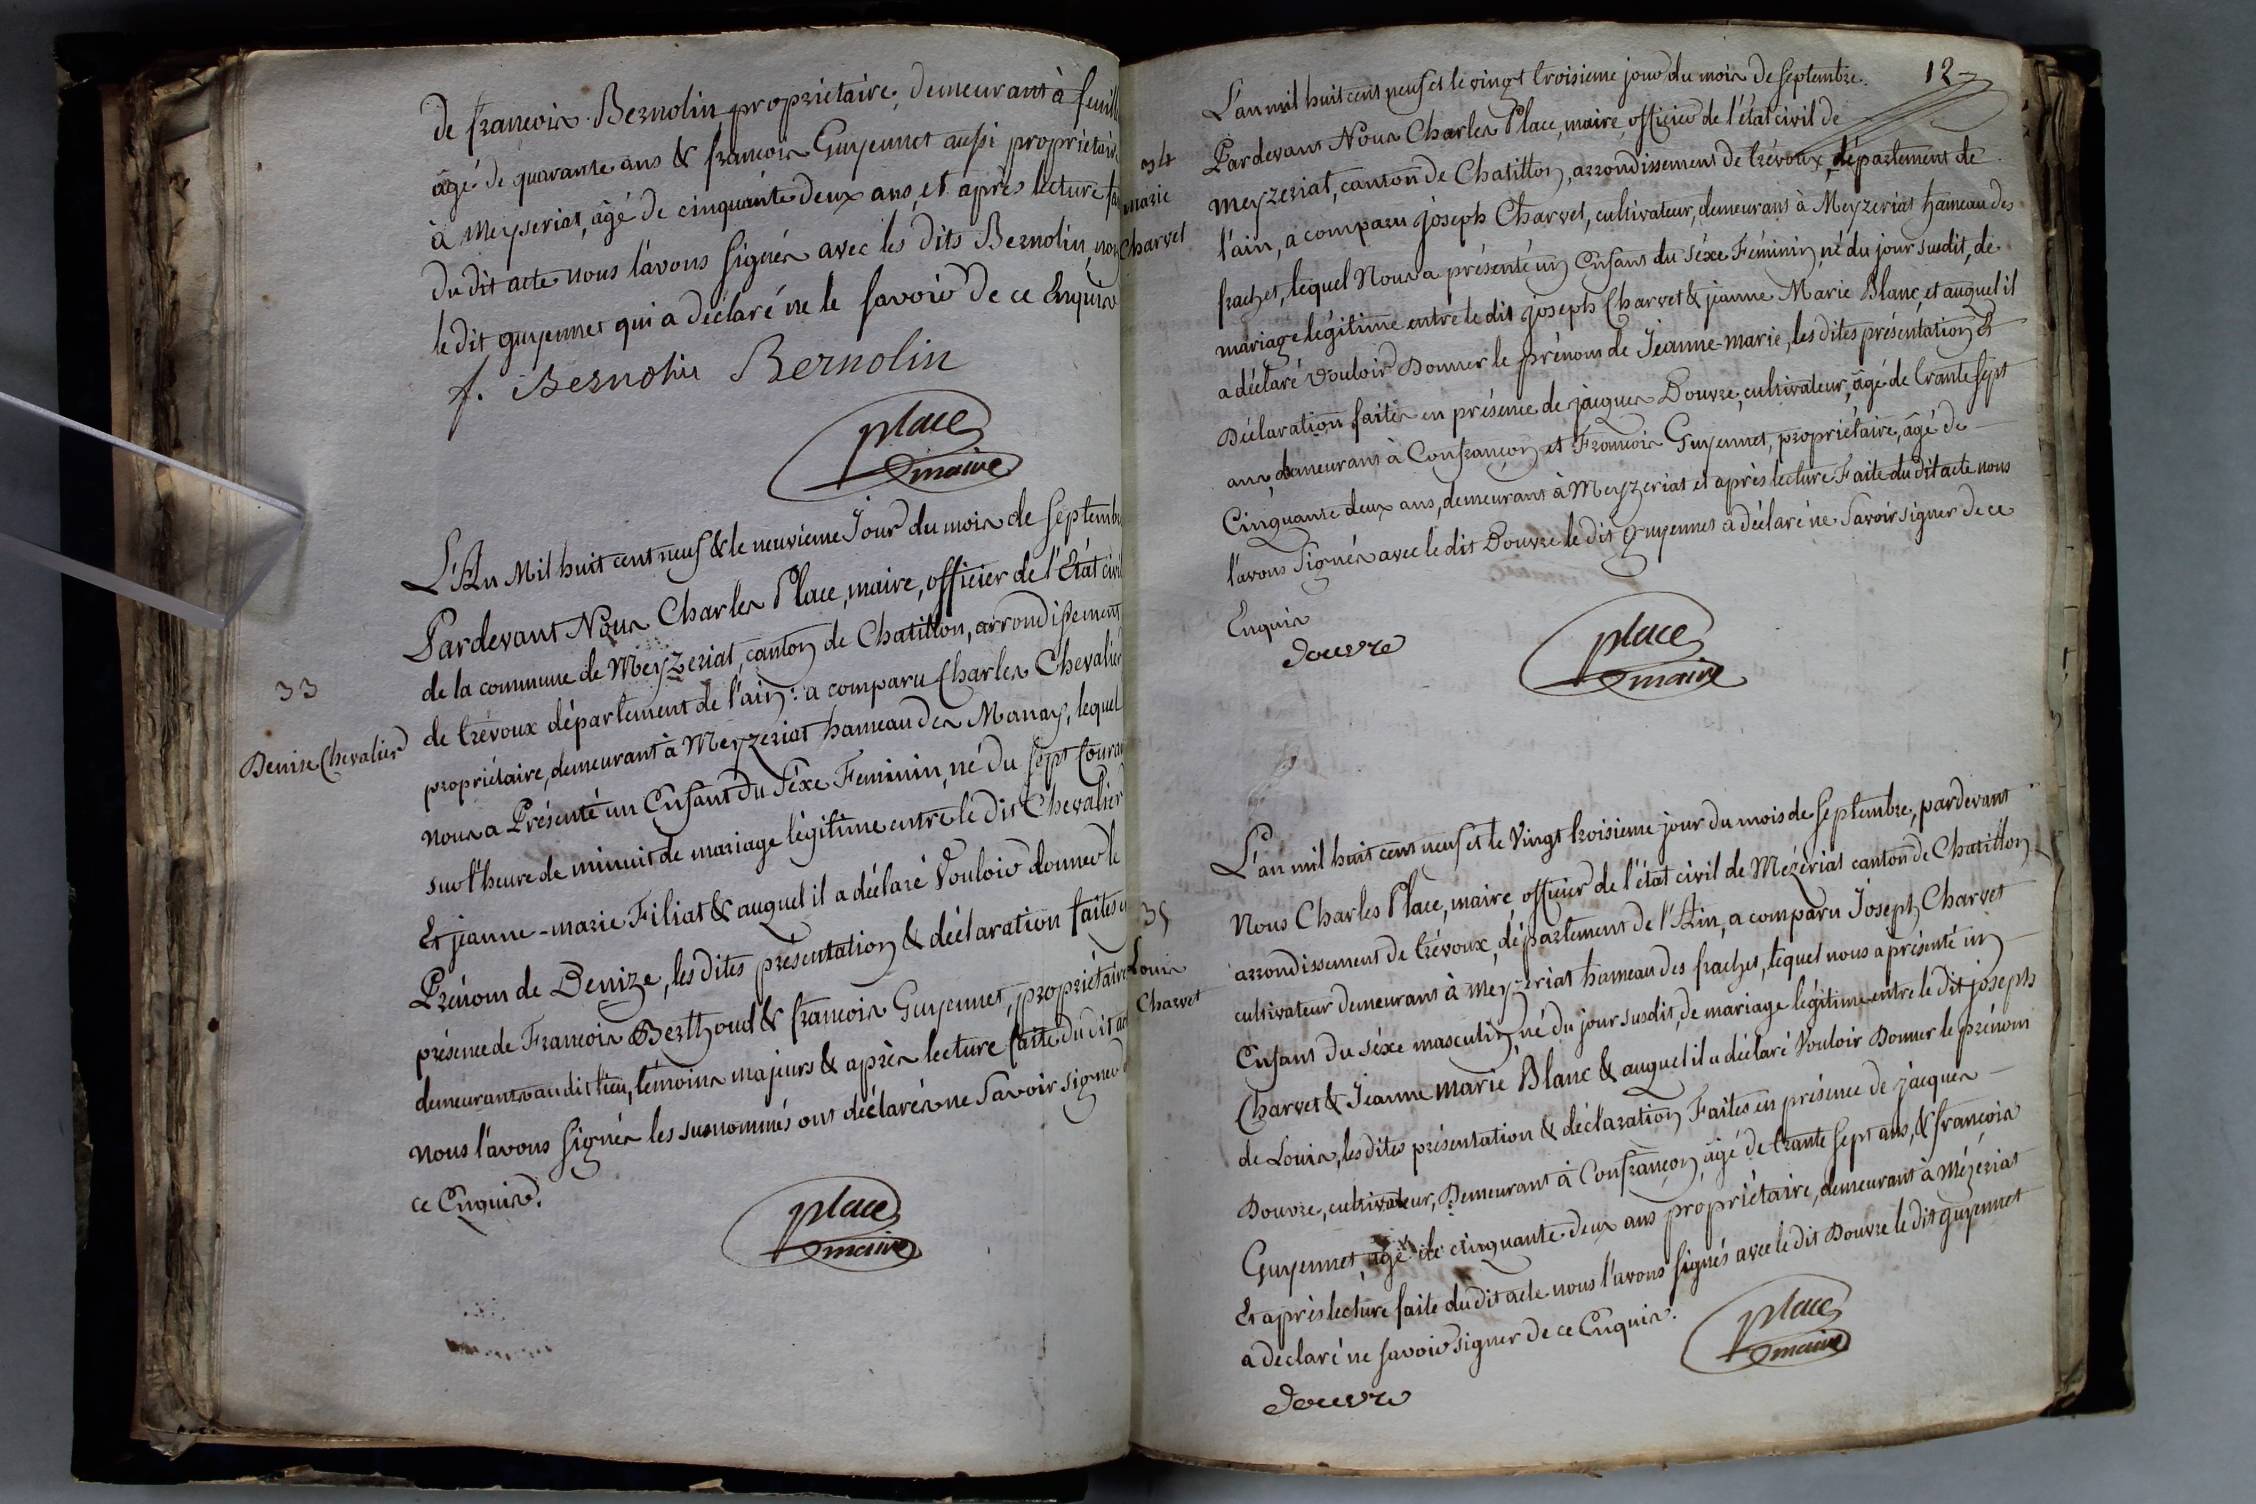 de françois Bernolin, propriétaire, demeurant à
âgé de quarante ans & francois Guyennet aussi propriétaire
à Meyseriat, âgé de cinquante deux ans, et après lecture
du dit acte nous l'avons signés avec les dits Bernolin, non
le dit guyennet qui a déclaré ne le savoir de ce Enquis
f. Bernolin Bernolin
place
maire
L'An Mil huit cent neuf & le neuvieme Jour du mois de septembre
Pardevant Nous Charles Place, maire, officier de l'Etat civil
de la commune de Meyzeriat, canton de Chatillon, arrondissement
33
de trévoux département de l'ain: a comparu Charles Chevalier
Denise Chevalier
propriétaire, demeurant à Meyzeriat hameau des Manays, lequel
nous a Présenté un Enfant du Séxe Feminin, né du sept Courant
sur l'heure de minuit de mariage légitime entre le dit Chevalier
Et jeanne-marie Filiat & auquel il a déclaré Vouloir donner le
Prénom de Denize, les dites présentation & déclaration faites en
présence de Francois Berthoud & francois Guyennet, propriétaires
demeurants au dit lieu, témoins majeurs & après lecture faite du dit acte
nous l'avons signés les susnommés ont déclarés ne Savoir signer de
ce Enquis.
place
maire
12
L'an mil huit cent neuf et le vingt troisieme jour du mois de septembre.
34
marie
Charvet
Pardevant Nous Charles Place, maire, officier de l'état civil de
meyzeriat, canton de Chatillon, arrondissement de trévoux, département de
l'ain, a comparu joseph Charvet, cultivateur, demeurant à Meyzeriat hameau des
fraches, lequel Nous a présenté un Enfant du séxe Féminin, né du jour susdit, de
mariage légitime entre le dit joseph Charvet & jeanne Marie Blanc, et auquel il
a déclaré vouloir Donner le prénom de Jeanne-marie, les dites présentation &
Déclaration faites en présence de jacques Douvre, cultivateur, âgé de trante sept
ans, demeurant à Confrançon et Francois Guyennet, propriétaire, âgé de
Cinquante deux ans, demeurant à Meyzeriat et après lecture Faite du dit acte nous
l'avons signés avec le dit Douvre le dit Guyennet a déclaré ne Savoir signer de ce
Enquis
douvre
place
maire
L'an mil huit cent neuf et le Vingt troisieme jour du mois de septembre, pardevant
Nous Charles Place, maire officier de l'état civil de Mézériat canton de Chatillon
35
Louis
Charvet
arrondissement de trévoux, département de l'Ain, a comparu Joseph Charvet
cultivateur demeurant à méyzeriat hameau des fraches, lequel nous a présenté un
Enfant du séxe masculin, né du jour susdit, de mariage légitime entre le dit joseph
Charvet & Jeanne marie Blanc & auquel il a déclaré Vouloir Donner le prénom
de Louis, les dites présentation & déclaration Faites en présence de jacques
Douvre, cultivateur, Demeurant à Confrançon âgé de trante sept ans, & francois
Guyennet, âgé de cinquante deux ans propriétaire, demeurant à Mézeriat
Et après lecture faite du dit acte nous l'avons signés avec le dit Douvre le dit guyennet
a declaré ne savoir signer de ce Enquis.
place
maire
douvre